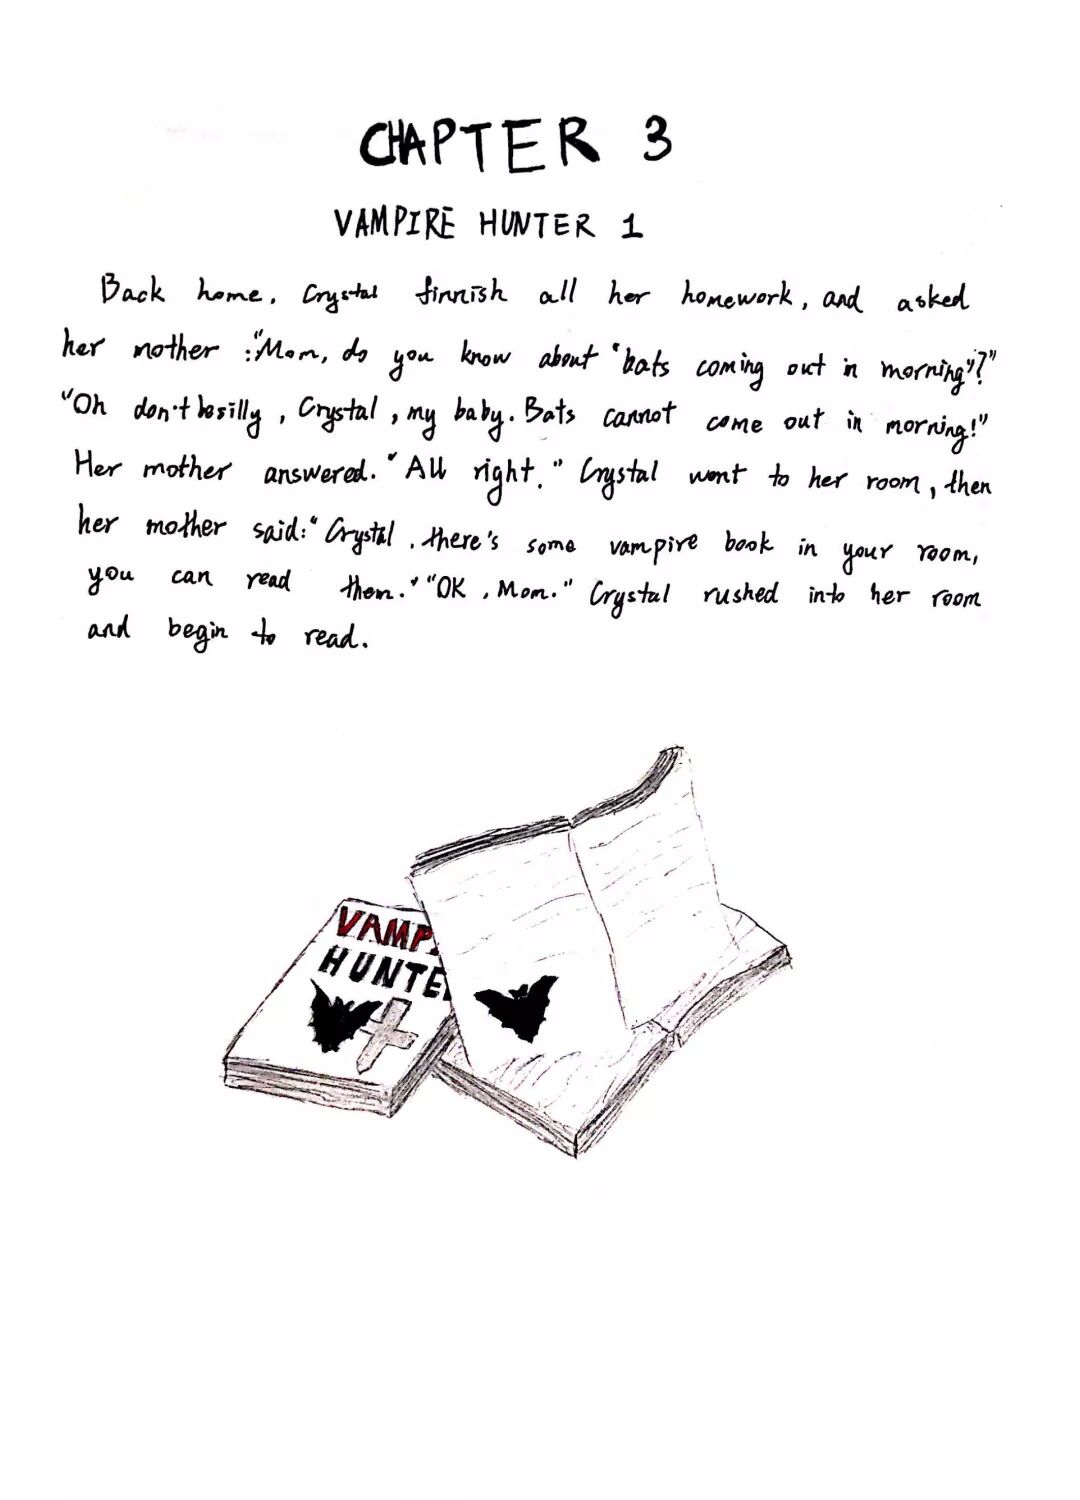 CHAPTER 3
VAMPIRE HUNTER 1
Back home. Crystal finnish all her homework, and asked
her mother :"Mom, do you know about "bats coming out in morning"?"
"Oh don't besilly, Crystal, my baby. Bats cannot come out in morning!"
Her mother answered. "All right." Crystal went to her room, then
her mother said:"Crystal, there's some vampire book in your room,
you can read them." "OK, Mom." Crystal rushed into her room
and begin to read.
VAMP
HUNTE